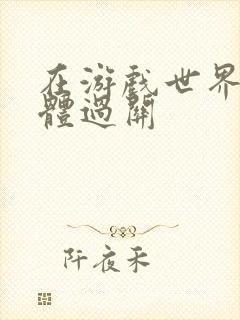 在游戲世界
體過關
阡夜禾